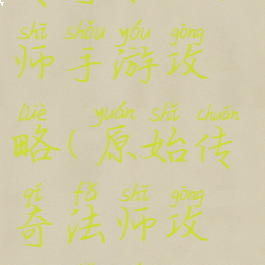 shī shǒu yóu gōng
师手游攻
lüè yuán shǐ chuán
略(原始传
qí fǎ shī gōng
奇法师攻